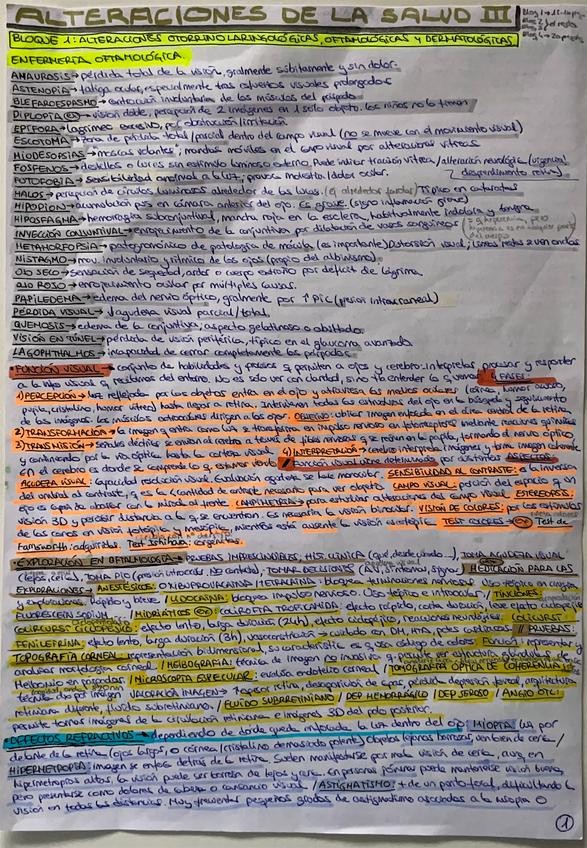 ALTERACIONES DE LA SALUD III
BLOQUE 1: ALTERACIONES OTORRINOLARINGOLÓGICAS, OFTAMOLÓGICAS Y DERMATOLÓGICAS
ENFERMERÍA OFTAMOLÓGICA.
AMAUROSIS → pérdida total de la visión, gralmente súbitamente y sin dolor.
ASTENOPÍA → fatiga ocular, especialmente tras esfuerzos visuales prolongados
BLEFAROESPASMO → contracción involuntaria de los músculos del párpado
DIPLOPÍA → visión doble, percepción de 2 imágenes en 1 solo objeto. los niños no la tienen
EPÍFORA → lagrimeo excesivo, por obstrucción/irritación
ESCOTOMA → zona de pérdida total/parcial dentro del campo visual (no se mueve con el movimiento visual)
MIODESOPSIAS → "moscas volantes", manchas móviles en el campo visual por alteraciones vítreas
FOSFENOS → destellos o luces sin estímulo luminoso externo. Puede indicar tracción vítrea/alteración neurológica (urgencia! desprendimiento retina)
FOTOFOBIA → sensibilidad anormal a la luz, provoca molestia/dolor ocular.
HALOS → percepción de círculos luminosos alrededor de las luces. (ej alrededor farolas) Típico en cataratas
HIPOPION → acumulación pus en cámara anterior del ojo. Es grave. (signo inflamación grave)
HIPOSFAGMA → hemorragia subconjuntival, mancha roja en la esclera, habitualmente indolora y
INYECCIÓN CONJUNTIVAL → enrojecimiento de la conjuntiva por dilatación de vasos sanguíneos
METAMORFOPSIA → patognomónico de patología de mácula (es importante) distorsión visual, líneas rectas se ven ondas
NISTAGMO → mov. involuntario y rítmico de los ojos (propio del albinismo).
OJO SECO → sensación de sequedad, ardor o cuerpo extraño por déficit de lágrima.
OJO ROJO → enrojecimiento ocular por múltiples causas.
PAPILEDEMA → edema del nervio óptico, gralmente por ↑PIC (presión intracraneal)
PÉRDIDA VISUAL → ↓agudeza visual parcial/total.
QUEMOSIS → edema de la conjuntiva; aspecto gelatinoso o abultado.
VISIÓN EN TÚNEL → pérdida de visión periférica, típico en el glaucoma avanzado.
LAGOPHTHALMOS → incapacidad de cerrar completamente los párpados.
FUNCIÓN VISUAL → conjunto de habilidades y procesos q permiten a ojos y cerebro interpretar, procesar y responder
a la info visual q recibimos del entorno. No es solo ver con claridad, sino tb entender lo q vemos. 4 FASES:
1) PERCEPCIÓN → luz reflejada por los objetos entra en el ojo y atraviesa los medios oculares (córnea, humor acuoso,
pupila, cristalino, humor vítreo) hasta llegar a retina.
las imágenes. los músculos extraoculares dirigen los ojos. OBJETIVO: ubicar imagen enfocada en el área central de la retina.
2) TRANSFORMACIÓN → la imagen q entra como luz se transforma en impulso nervioso en fotoreceptores mediante reacciones químicas
3) TRANSMISIÓN → señales eléctricas se envían al cerebro a través de fibras nerviosas q se reúnen en la papila, formando el nervio óptico
y continuando por la vía óptica hasta la corteza visual. 4) INTERPRETACIÓN → cerebro interpreta imágenes y toma imagen coherente
en el cerebro es donde se comprende lo q estamos viendo. Función visual viene determinada por distintos ASPECTOS
AGUDEZA VISUAL: capacidad resolución visual. SENSIBILIDAD AL CONTRASTE: es la inversa
CAMPO VISUAL: porción del espacio q un
ojo es capaz de abarcar con la mirada al frente. CAMPIMETRÍA → para estudiar alteraciones del campo visual. ESTEREOPSIS:
visión 3D y percibir distancia a la q se encuentran. Es necesaria la visión binocular. VISIÓN DE COLORES:
TEST COLORES → Test de
Farnsworth: adquiridas. Test Ishihara: congénitas.
EXPLORACIÓN EN OFTALMOLOGÍA → PRUEBAS IMPRESCINDIBLES; HIST. CLÍNICA (qué, desde cuándo...), TOMA AGUDEZA VISUAL
(lejos, cerca), TOMA PIO (presión intraocular, No contacto), MEDICACIÓN PARA LAS
EXPLORACIONES → ANESTÉSICOS: OXIBUPROVACAÍNA/TETRACAÍNA: bloquea terminaciones nerviosas. Uso tópico en cirugía
y exploraciones. Rápido y leve / LIDOCAÍNA: bloquea impulso nervioso. Uso tópico e intraocular / TINCIONES:
FLUORESCEÍNA SÓDICA. MIDRIÁTICOS: COLIRCUSÍ TROPICAMIDA: efecto rápido, corta duración, leve efecto cicloplejico
COLIRCUSÍ CICLOPLEJICO: efecto lento, larga duración (24h), efecto cicloplejico, reacciones neurológicas. COLIRCUSÍ
FENILEFRINA: efecto lento, larga duración (3h), vasoconstrictor → cuidado con DM, HTA, post cardíacos. / PRUEBAS:
TOPOGRAFÍA CORNEAL: representación bidimensional, su característica es q usa código de colores.
análisis morfología corneal. / MEIBOGRAFÍA: técnica de imagen no invasiva q permite ver estructura glándulas de
Meibomio en párpados / MICROSCOPÍA ESPECULAR: evalúa endotelio corneal / TOMOGRAFÍA ÓPTICA DE COHERENCIA:
VALORACIÓN IMAGEN → ↑grosor retina, desaparición de capas, pérdida depresión foveal, arquitectura
retiniana diferente, fluido subretiniano. / FLUIDO SUBRETINIANO / DEP HEMORRÁGICO / DEP SEROSO / ANGIO OTC:
permite tomar imágenes de la circulación retiniana e imágenes 3D del polo posterior.
DEFECTOS REFRACTIVOS → dependiendo de donde quede enfocada la luz dentro del ojo. MIOPÍA:
delante de la retina (ojos largos, o córnea/cristalino demasiado potente) Objetos lejanos borrosos, ven bien de cerca /
HIPERMETROPÍA: imagen se enfoca detrás de la retina. Suelen manifestarse por mala visión de cerca, aunq en
hipermetropías altas, la visión puede ser borrosa de lejos y cerca. En personas jóvenes puede mantenerse visión buena,
pero presentarse como dolores de cabeza o cansancio visual / ASTIGMATISMO: + de un punto focal, dificultando la
visión en todas las distancias. Muy frecuentes pequeños grados de astigmatismo asociados a la miopía o
1